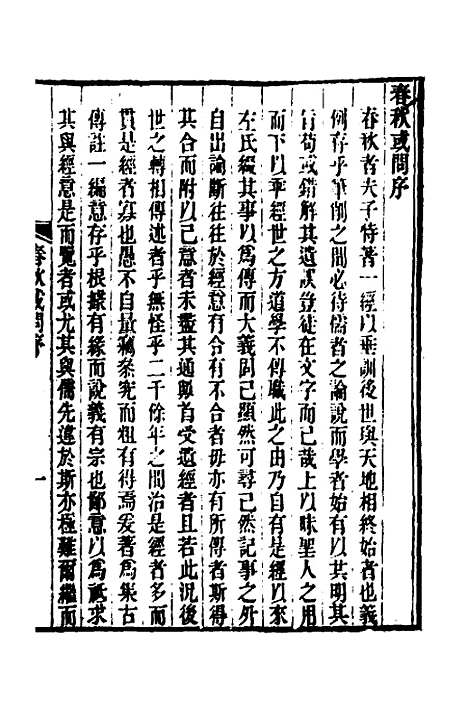 春秋或問序
春秋者夫子特著一經以垂訓後世與天地相終始者也義
例存乎筆削之間必待儒者之論說而學者始有以其明其
旨苟或錯解其遺誤豈徒在文字而已哉上以昧聖人之用
而下以乖經世之方道學不傳職此之由乃自有是經以來
左氏綴其事以爲傳而大義固已顯然可尋已然記事之外
自出論斷往往於經意有合有不合者毋亦有所傳者斯得
其合而附以已意者未盡其通與首受遺經者且若此況後
世之轉相傳述者乎無怪乎二千餘年之間治是經者多而
貫是經者寡也愚不自量竊紊究而粗有得焉爰著爲集古
傳註一編意存乎根據有緣而說義有宗也鄙意以爲祗求
其與經意是而覽者或尤其與儒先違於斯亦極難爾繼而
春秋或問序
一